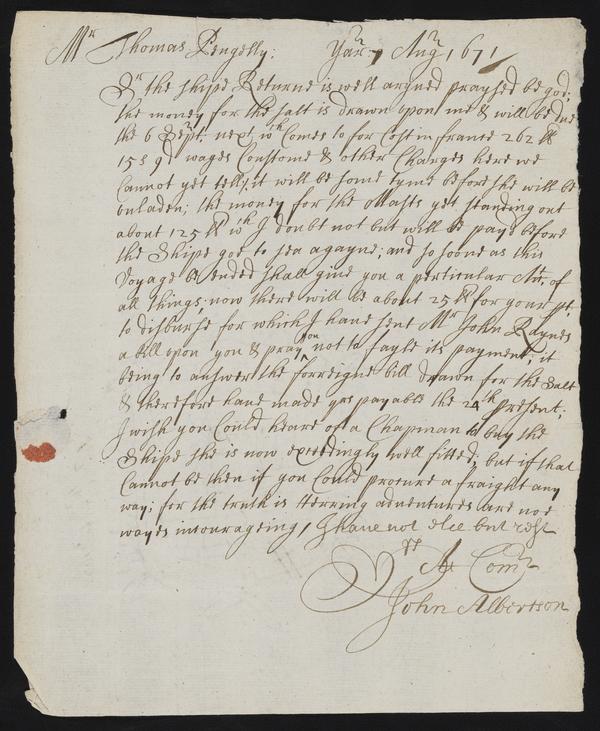 Mr Thomas Pengelly: Yarm 7 Augt 1671
Sr the shipe Returne is well aryued praysed be god;
the money for the salt is drawn vpon me & will be due
the 6 Sept: next wch Comes to for Cost in france 262 ll
15s 9d wages Custome & other Charges here we
Cannot yet tell, it will be some tyme before she will be
vnladen; the money for the Masts yet standing out
about 125 ll wch I doubt not but will be payd before
the Shipe goe to sea agayne; and so soone as this
Voyage is ended shall giue you a perticular Act. of
all things; now there will be about 25 ll for your pt.
to disburse for which I haue sent Mr John Raynes
a bill vpon you & pray you not to fayle its payment; it
being to answer the forreigne bill drawn for the Salt
& therefore haue made yrs payable the 24th present;
I wish you Could heare of a Chapman to buy the
Shipe she is now exceedingly well fitted; but if that
Cannot be then if you Could procure a fraight any
way; for the truth is Herring aduentures are noe
wayes incourageing, I haue not else but rest
Yr
John Albertson